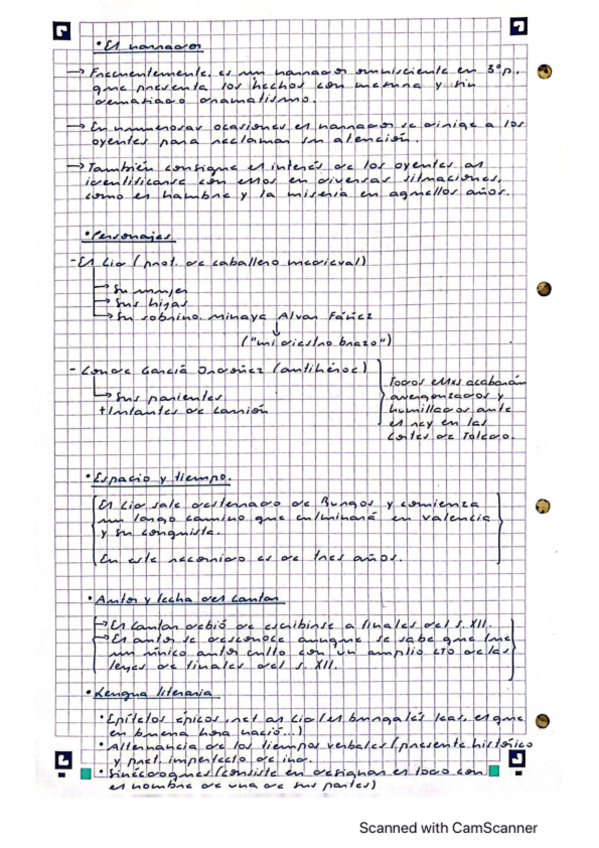 • El narrador
→ Frecuentemente, es un narrador omnisciente en 3ªp.
que presenta los hechos con mesura y sin
demasiado dramatismo.
→ En numerosas ocasiones el narrador se dirige a los
oyentes para reclamar su atención.
→ También consigue el interés de los oyentes al
identificarse con ellos en diversas situaciones,
como el hambre y la miseria en aquellos años.
• Personajes
- El Cid (prot. de caballero medieval)
→ Su mujer
→ Sus hijas
→ Su sobrino. Minaya Alvar Fáñez
↓
("mi diestro brazo")
- Conde García Ordoñez (antihéroe)
→ Sus parientes
+ Infantes de Carrión
Todos ellxs acabarán
avergonzados y
humillados ante
el rey en las
Cortes de Toledo.
• Espacio y tiempo.
El Cid sale desterrado de Burgos y comienza
un largo camino que culminará en Valencia
y su conquista.
En este recorrido es de tres años.
• Autor y fecha del Cantar
→ El Cantar debió de escribirse a finales del s. XII.
→ El autor se desconoce aunque se sabe que fue
un único autor culto con un amplio cto de las
leyes de finales del s. XII.
• Lengua literaria
• Epítetos épicos, ref al Cid (el burgalés leal, el que
en buena hora nació...)
• Alternancia de los tiempos verbales (presente histórico
y pret. imperfecto de ind.
• Sinécdoques (consiste en designar el todo con
el nombre de una de sus partes)
Scanned with CamScanner